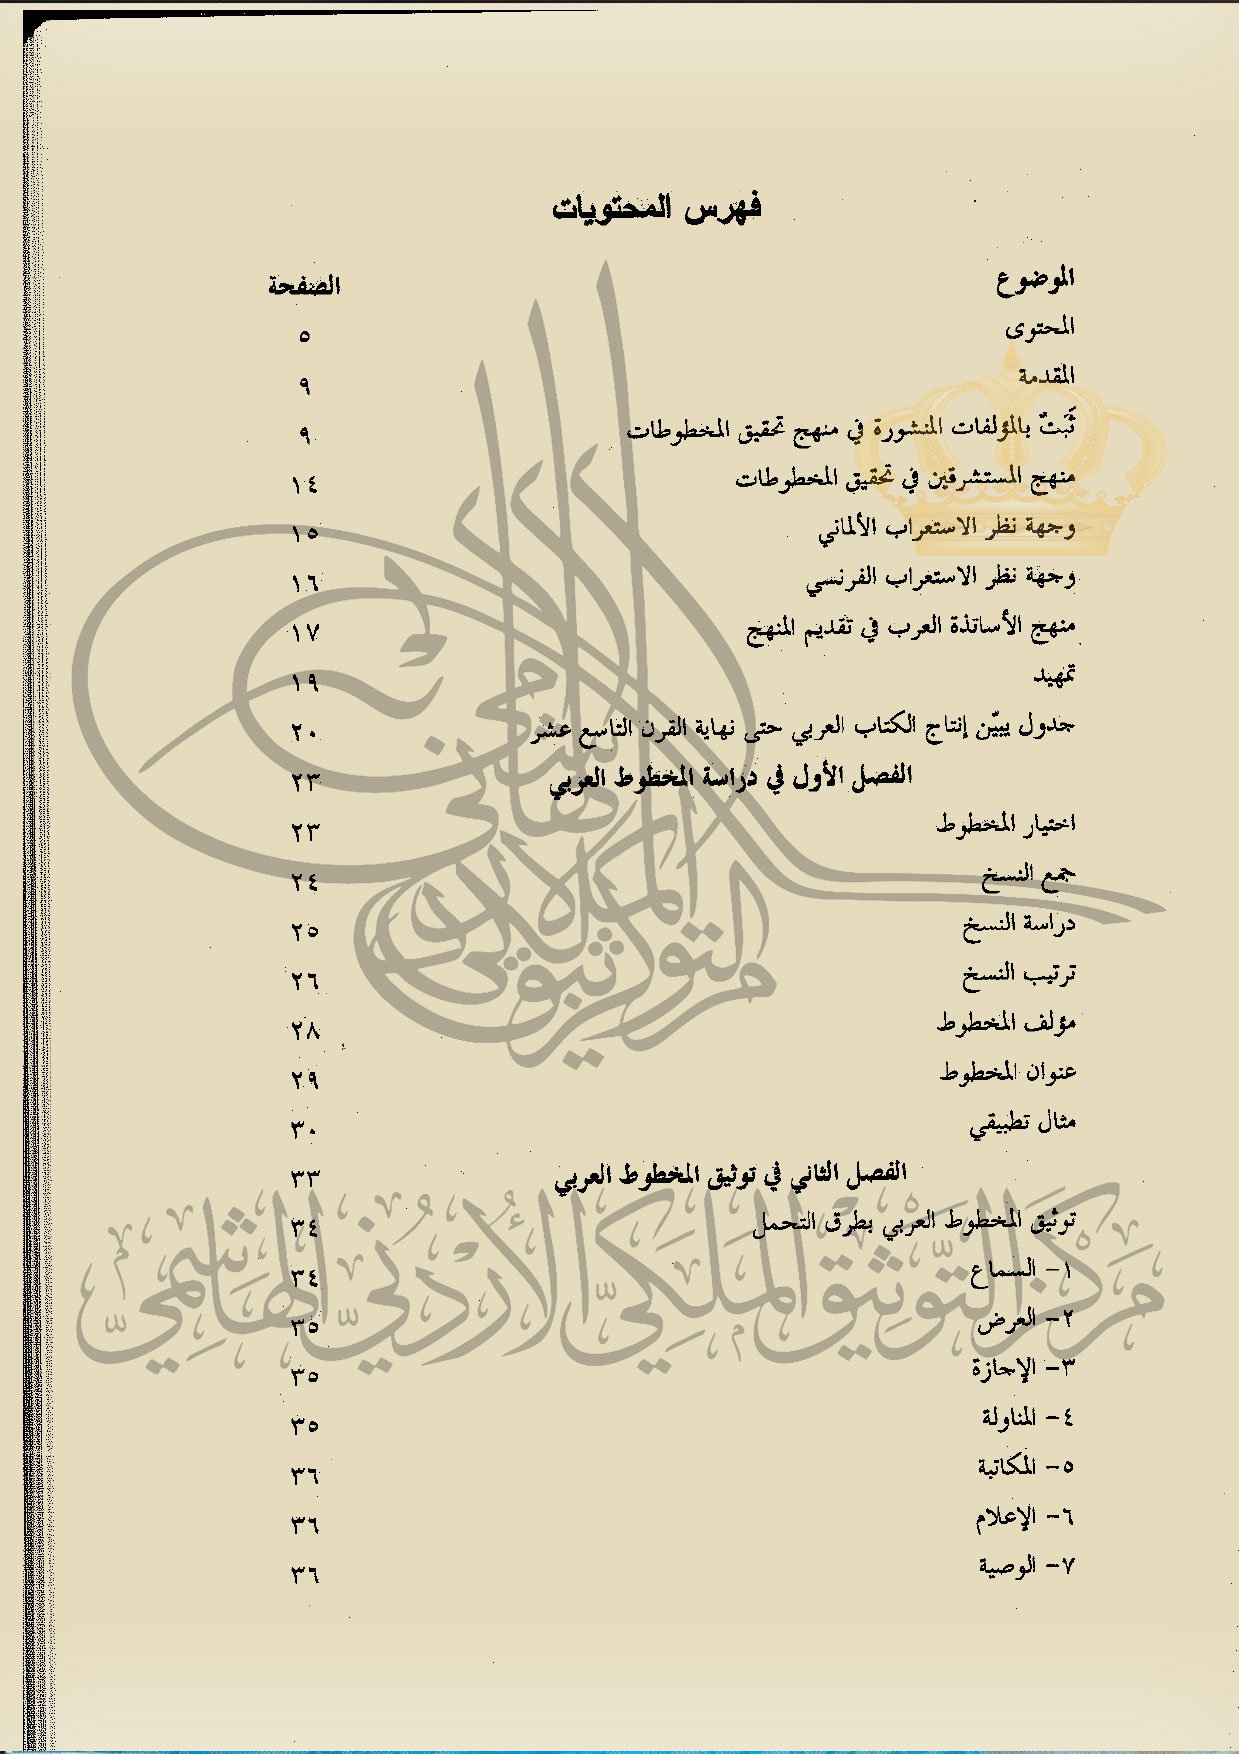 فهرس المحتويات
الموضوع الصفحة
المحتوى ٥
المقدمة ٩
ثَبَتٌ بالمؤلفات المنشورة في منهج تحقيق المخطوطات ٩
منهج المستشرقين في تحقيق المخطوطات ١٤
وجهة نظر الاستعراب الألماني ١٥
وجهة نظر الاستعراب الفرنسي ١٦
منهج الأساتذة العرب في تقديم المنهج ١٧
تمهيد ١٩
جدول يبيّن إنتاج الكتاب العربي حتى نهاية القرن التاسع عشر ٢٠
الفصل الأول في دراسة المخطوط العربي ٢٣
اختيار المخطوط ٢٣
جمع النسخ ٢٤
دراسة النسخ ٢٥
ترتيب النسخ ٢٦
مؤلف المخطوط ٢٨
عنوان المخطوط ٢٩
مثال تطبيقي ٣٠
الفصل الثاني في توثيق المخطوط العربي ٣٣
توثيق المخطوط العربي بطرق التحمل ٣٤
١- السماع ٣٤
٢- العرض ٣٥
٣- الإجازة ٣٥
٤- المناولة ٣٥
٥- المكاتبة ٣٦
٦- الإعلام ٣٦
٧- الوصية ٣٦
مركز التوثيق الملكي الأردني الهاشمي